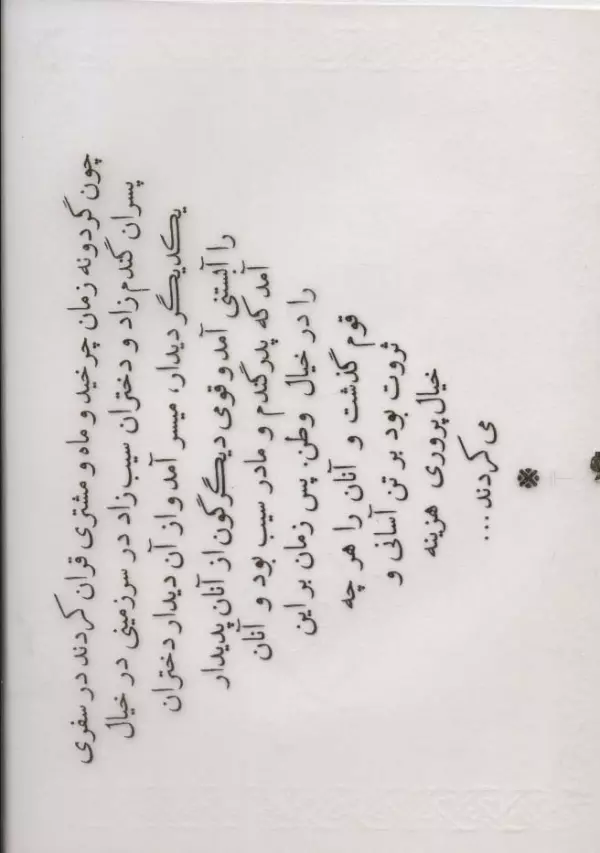 چون گردونه زمان چرخید و ماه و مشتری قران کردند در سفری
پسران گندم زاد و دختران سیب زاد در سرزمینی در خیال
یکدیگر دیدار، میسر آمد و از آن دیدار دختران
را آبستنی آمد و قومی دیگرگون از آنان پدیدار
آمد که پدر گندم و مادر سیب بود و آنان
را در خیال وطن. پس زمان بر این
قوم گذشت و آنان را هر چه
ثروت بود بر تن آسانی و
خیال پروری هزینه
می کردند ...